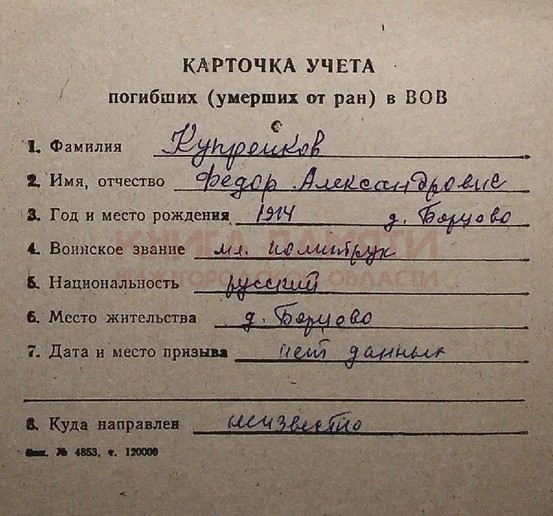 КАРТОЧКА УЧЕТА
погибших (умерших от ран) в ВОВ
1. Фамилия Купрейков
2. Имя, отчество Федор Александрович
3. Год и место рождения 1914 д. Борцово
КНИГА ПАМЯТИ
4. Воинское звание мл. политрук
НИЖЕГОРОДСКОЙ ОБЛАСТИ
5. Национальность русский
6. Место жительства д. Борцово
7. Дата и место призыва нет данных
8. Куда направлен неизвестно
Зак. № 4853, т. 120000